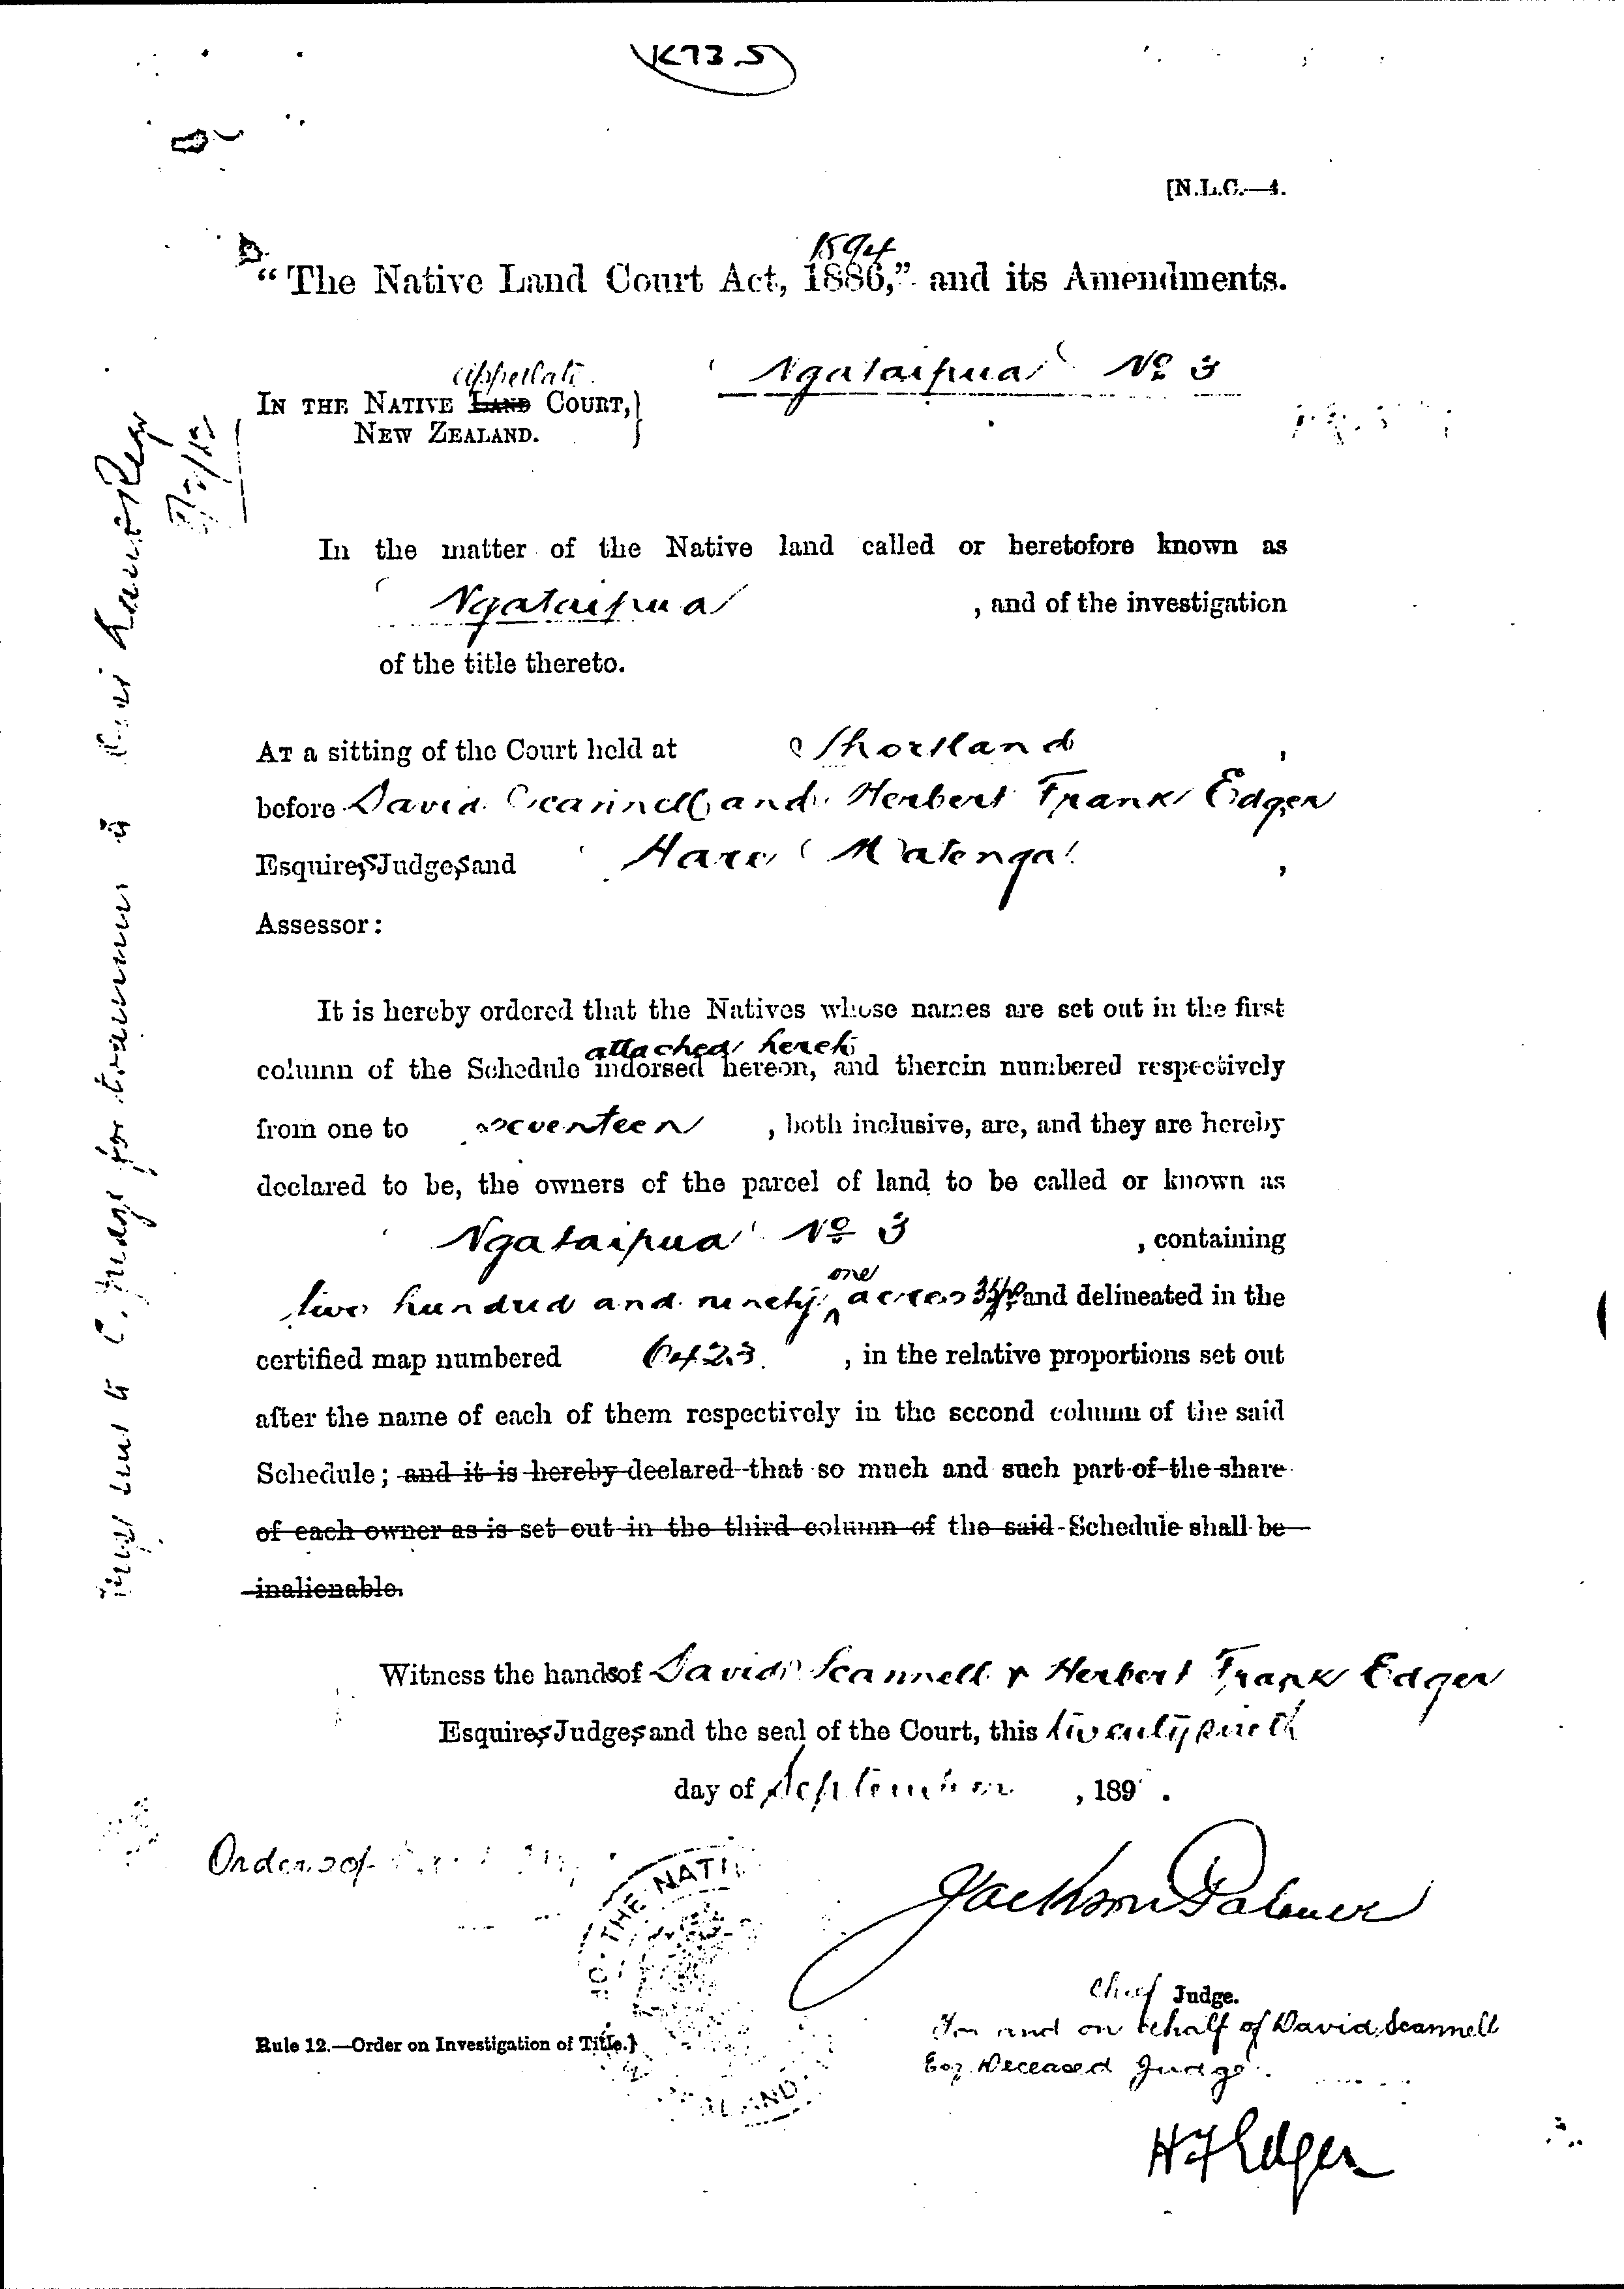 K73.5
[N.L.C.—4.
1894
“The Native Land Court Act, 1886,” and its Amendments.
Appellate
IN THE NATIVE LAND COURT,}
NEW ZEALAND.
Ngataipua No 3
In the matter of the Native land called or heretofore known as
Ngataipua , and of the investigation
of the title thereto.
AT a sitting of the Court held at Shortland ,
before David Scannell and Herbert Frank Edger
Esquires Judges and Hare Matenga ,
Assessor:
It is hereby ordered that the Natives whose names are set out in the first
attached hereto
column of the Schedule indorsed hereon, and therein numbered respectively
from one to seventeen , both inclusive, are, and they are hereby
declared to be, the owners of the parcel of land to be called or known as
Ngataipua No 3 , containing
one
two hundred and ninety acres and delineated in the
certified map numbered 6423 , in the relative proportions set out
after the name of each of them respectively in the second column of the said
Schedule; and it is hereby declared that so much and such part of the share
of each owner as is set out in the third column of the said Schedule shall be
inalienable.
Witness the hands of David Scannell & Herbert Frank Edger
Esquires Judges and the seal of the Court, this
day of September , 189 .
Orders of
THE NATI
Jackson Palmer
Chief Judge.
For and on behalf of David Scannell
Esq Deceased Judge.
Rule 12.—Order on Investigation of Title.}
ALAND
H F Edger
Judge for